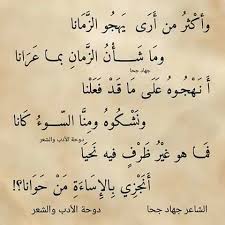 وأكثرُ من أرَى يَهجو الزَّمانا
ومَا شَأْنُ الزَّمانِ بمَا عَرَانا
جهاد جحا
أنَهْجُوهُ عَلَى مَا قَدْ فَعَلْنا
ونَشْكُوهُ ومِنَّا السّوءُ كَانا
دوحة الأدب والشعر
فمَا هو غيْرُ ظَرْفٍ فيه نَحيَا
أَنَجْزِي بالإسَاءَةِ مَنْ حَوَانا؟!
الشاعر جهاد جحا دوحة الأدب والشعر